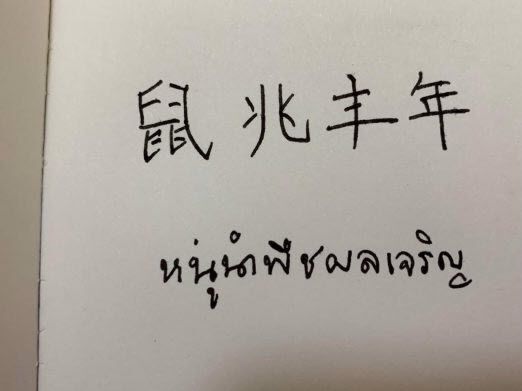 鼠兆丰年
หนูนำพืชผลเจริญ